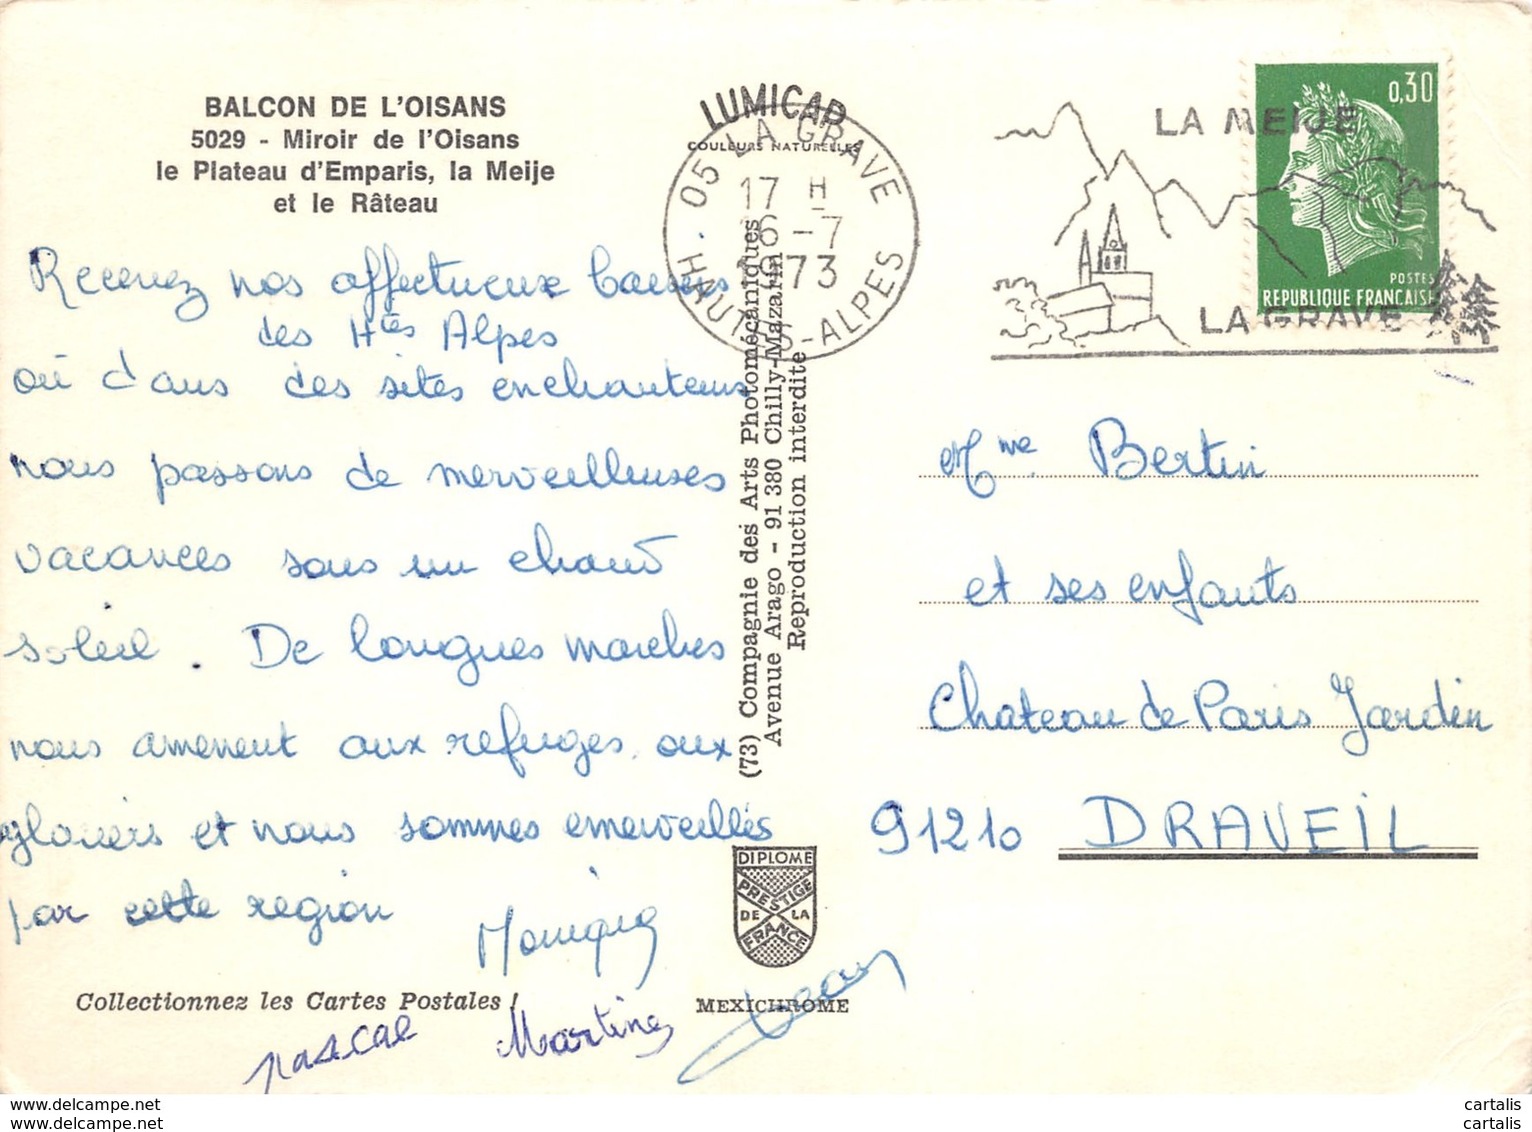 BALCON DE L'OISANS
5029 - Miroir de l'Oisans
le Plateau d'Emparis, la Meije
et le Râteau
Recevez nos affectueux baisers
des Htes Alpes
où dans des sites enchanteurs
nous passons de merveilleuses
vacances sous un chaud
soleil. De longues marches
nous amenent aux refuges, aux
glaciers et nous sommes emerveillés
par cette region
Monique
Pascal
Martine
Jean
Collectionnez les Cartes Postales !
LUMICAP
COULEURS NATURELLES
05 LA GRAVE
17 H
16 -7
1973
HAUTES-ALPES
(73) Compagnie des Arts Photomécaniques
Avenue Arago - 91 380 Chilly-Mazarin
Reproduction interdite
DIPLOME
PRESTIGE
DE LA
FRANCE
MEXICHROME
LA MEIJE
LA GRAVE
0,30
POSTES
REPUBLIQUE FRANCAISE
Mme Bertin
et ses enfants
Chateau de Paris Jardin
91210 DRAVEIL
cartalis
cartalis
cartalis
cartalis